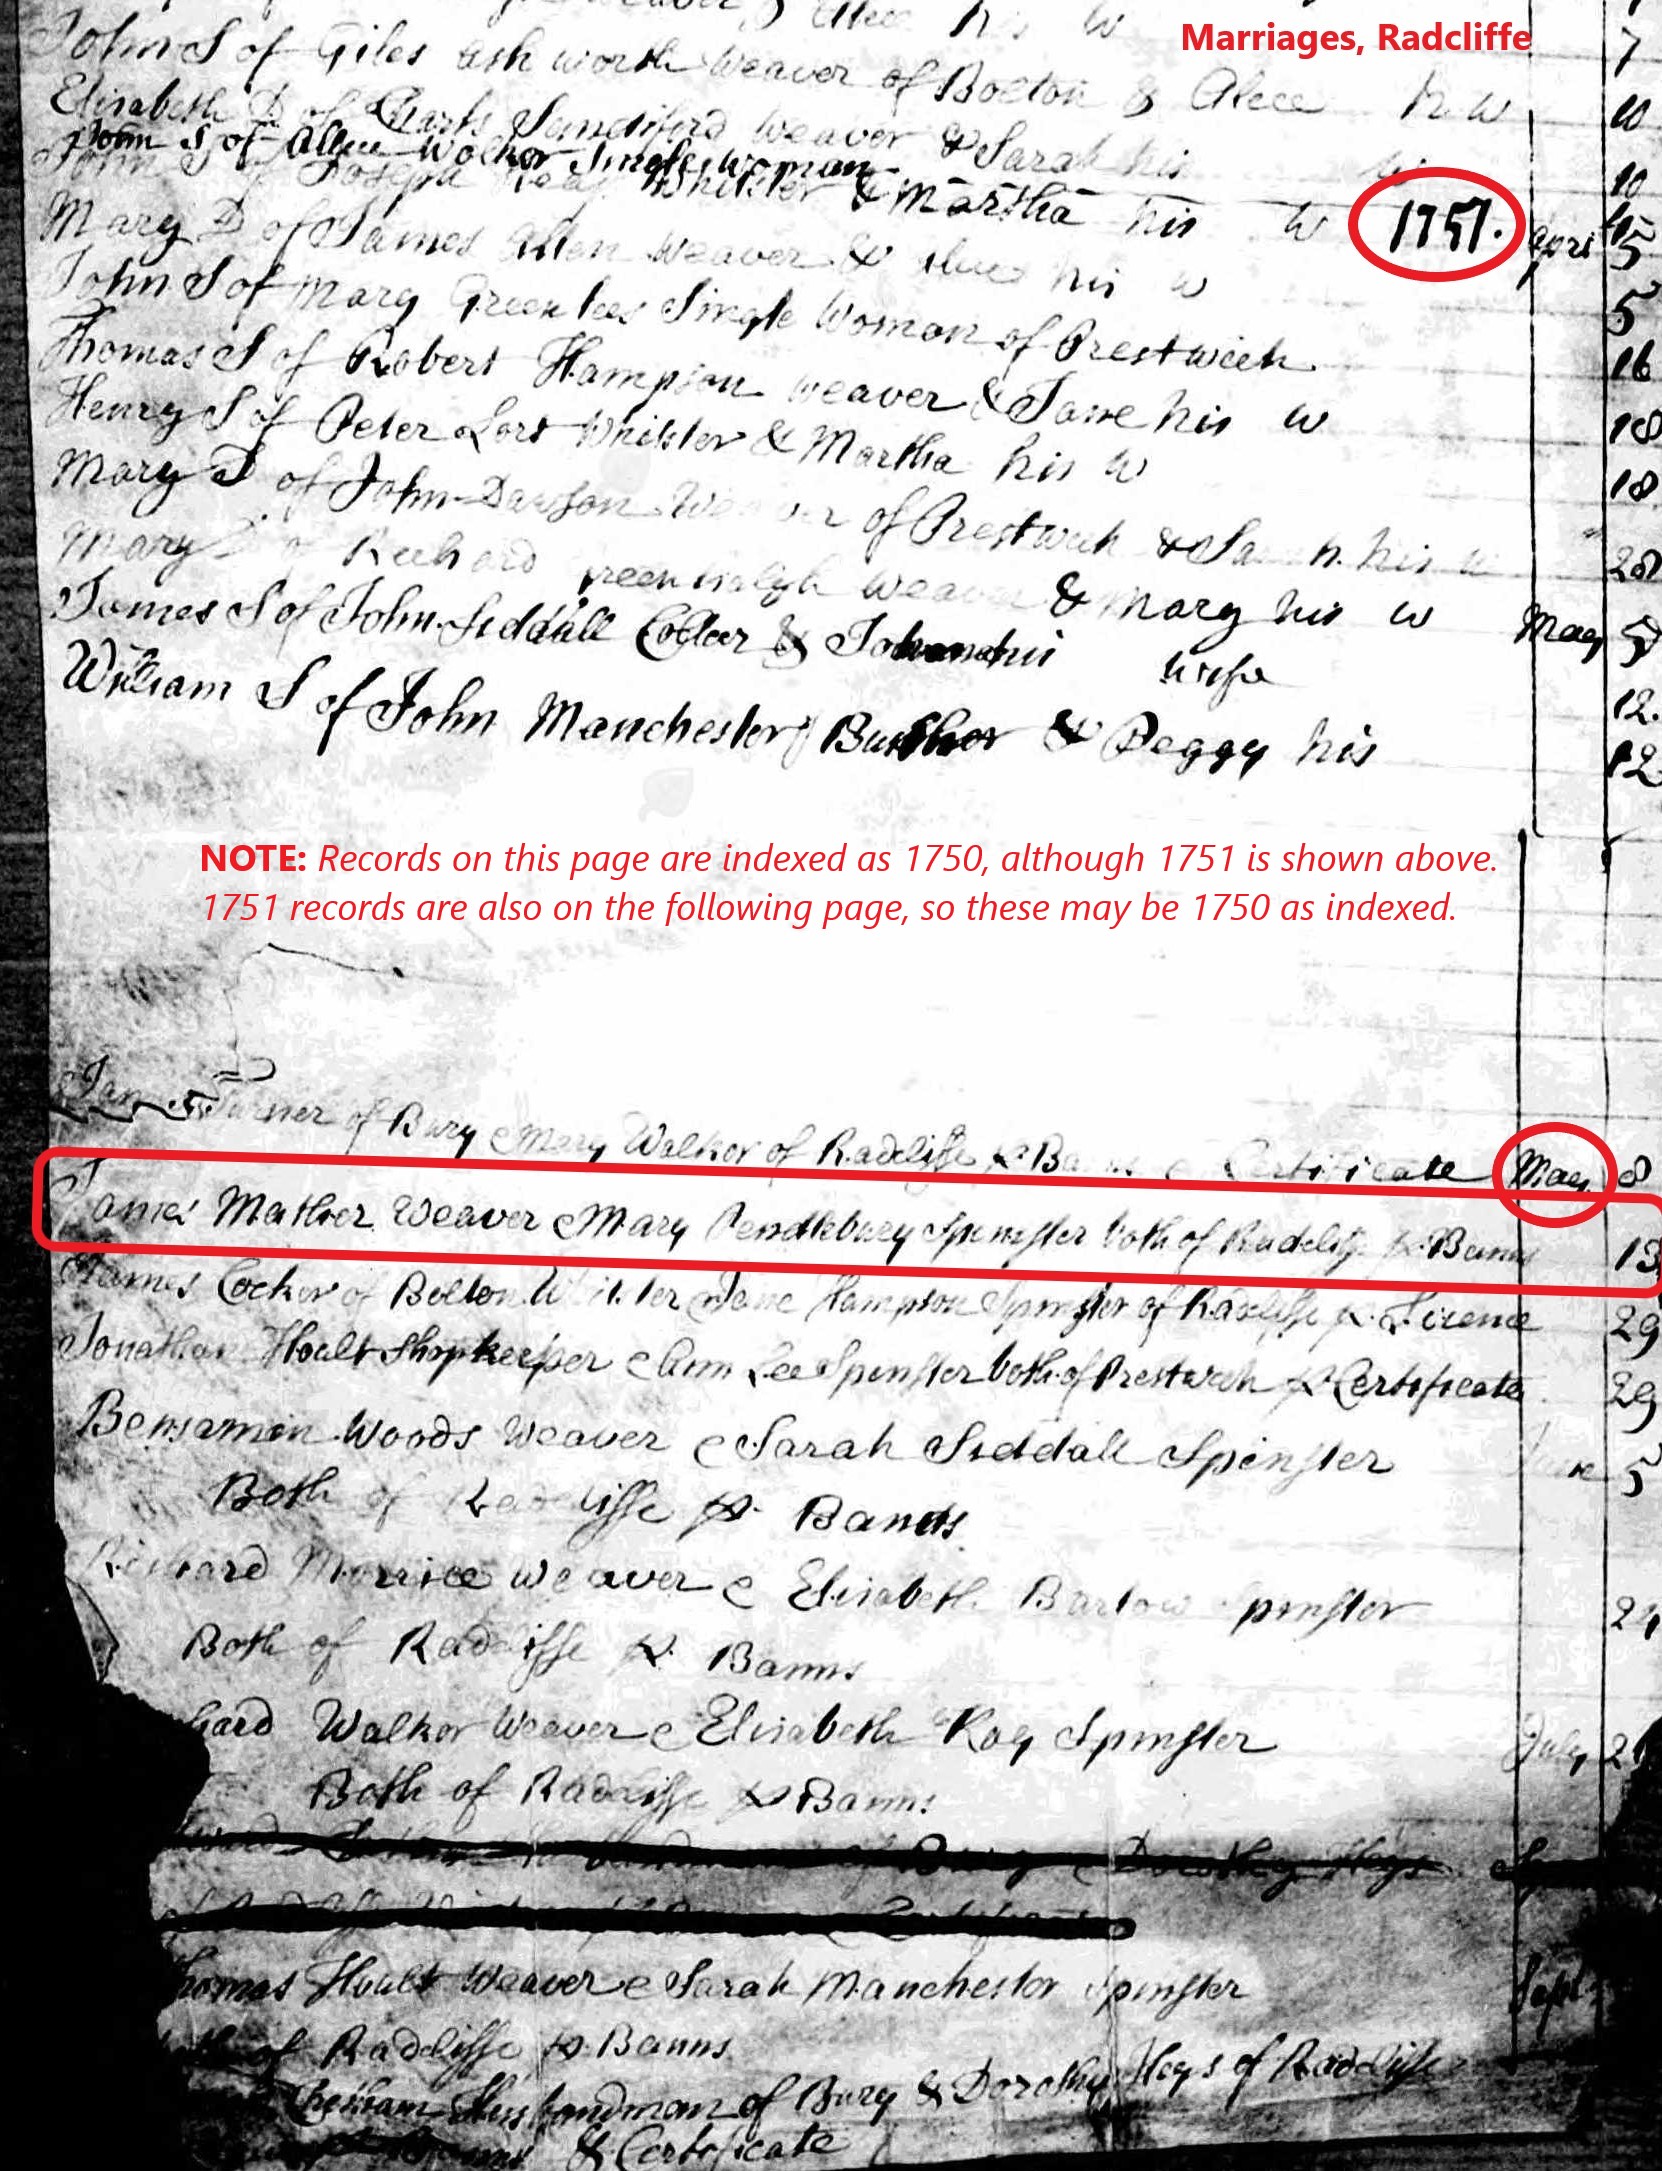 Marriages, Radcliffe
Alice his W
John S of Giles Ashworth Weaver of Bolton & Alice h. W 7
Elisabeth D of Charls Sandiford Weaver & Sarah his W 10
John S of Allice Wolker Singleswoman 10
John S of Joseph Whitster & Martha his W 1751. April 5
Mary D of James Allen Weaver & Alice his W 5
John S of Mary Greenlees Single Woman of Prestwich 16
Thomas S of Robert Hampson Weaver & Jane his W 18
Henry S of Peter Lort Whitster & Martha his W 18
Mary D of John Dawson Weaver of Prestwich & Sarah his W 28
Mary D of Richard Greenhalgh Weaver & Mary his W May 5
James S of John Siddall Colleer & his wife 12.
William S of John Manchester & Peggy his 12
NOTE: Records on this page are indexed as 1750, although 1751 is shown above.
1751 records are also on the following page, so these may be 1750 as indexed.
James Turner of Bury e Mary Walkor of Radcliffe p Banns e Certificate May 8
James Mather Weaver e Mary Pendlebury Spinster both of Radcliffe p Banns 13
James Cocker of Bolton Whitster e Jane Hampson Spinster of Radcliffe p Licence 29
Jonathan Hoult Shopkeeper e Ann Lee Spinster both of Prestwich p Certificate 29
Bensamin Woods Weaver e Sarah Siddall Spinster June 5
Both of Radcliffe p Banns
Richard Morrice Weaver e Elisabeth Barlow Spinster 24
Both of Radcliffe p Banns
hard Walkor Weaver e Elisabeth Kay Spinster July 2
Both of Radcliffe p Banns
of Bury e Dorothy Heys
homas Hoult Weaver e Sarah Manchestor Spinster Sept
of Radcliffe p Banns
Chetham Husbandman of Bury & Dorothy Heys of Radcliffe
& Certificate